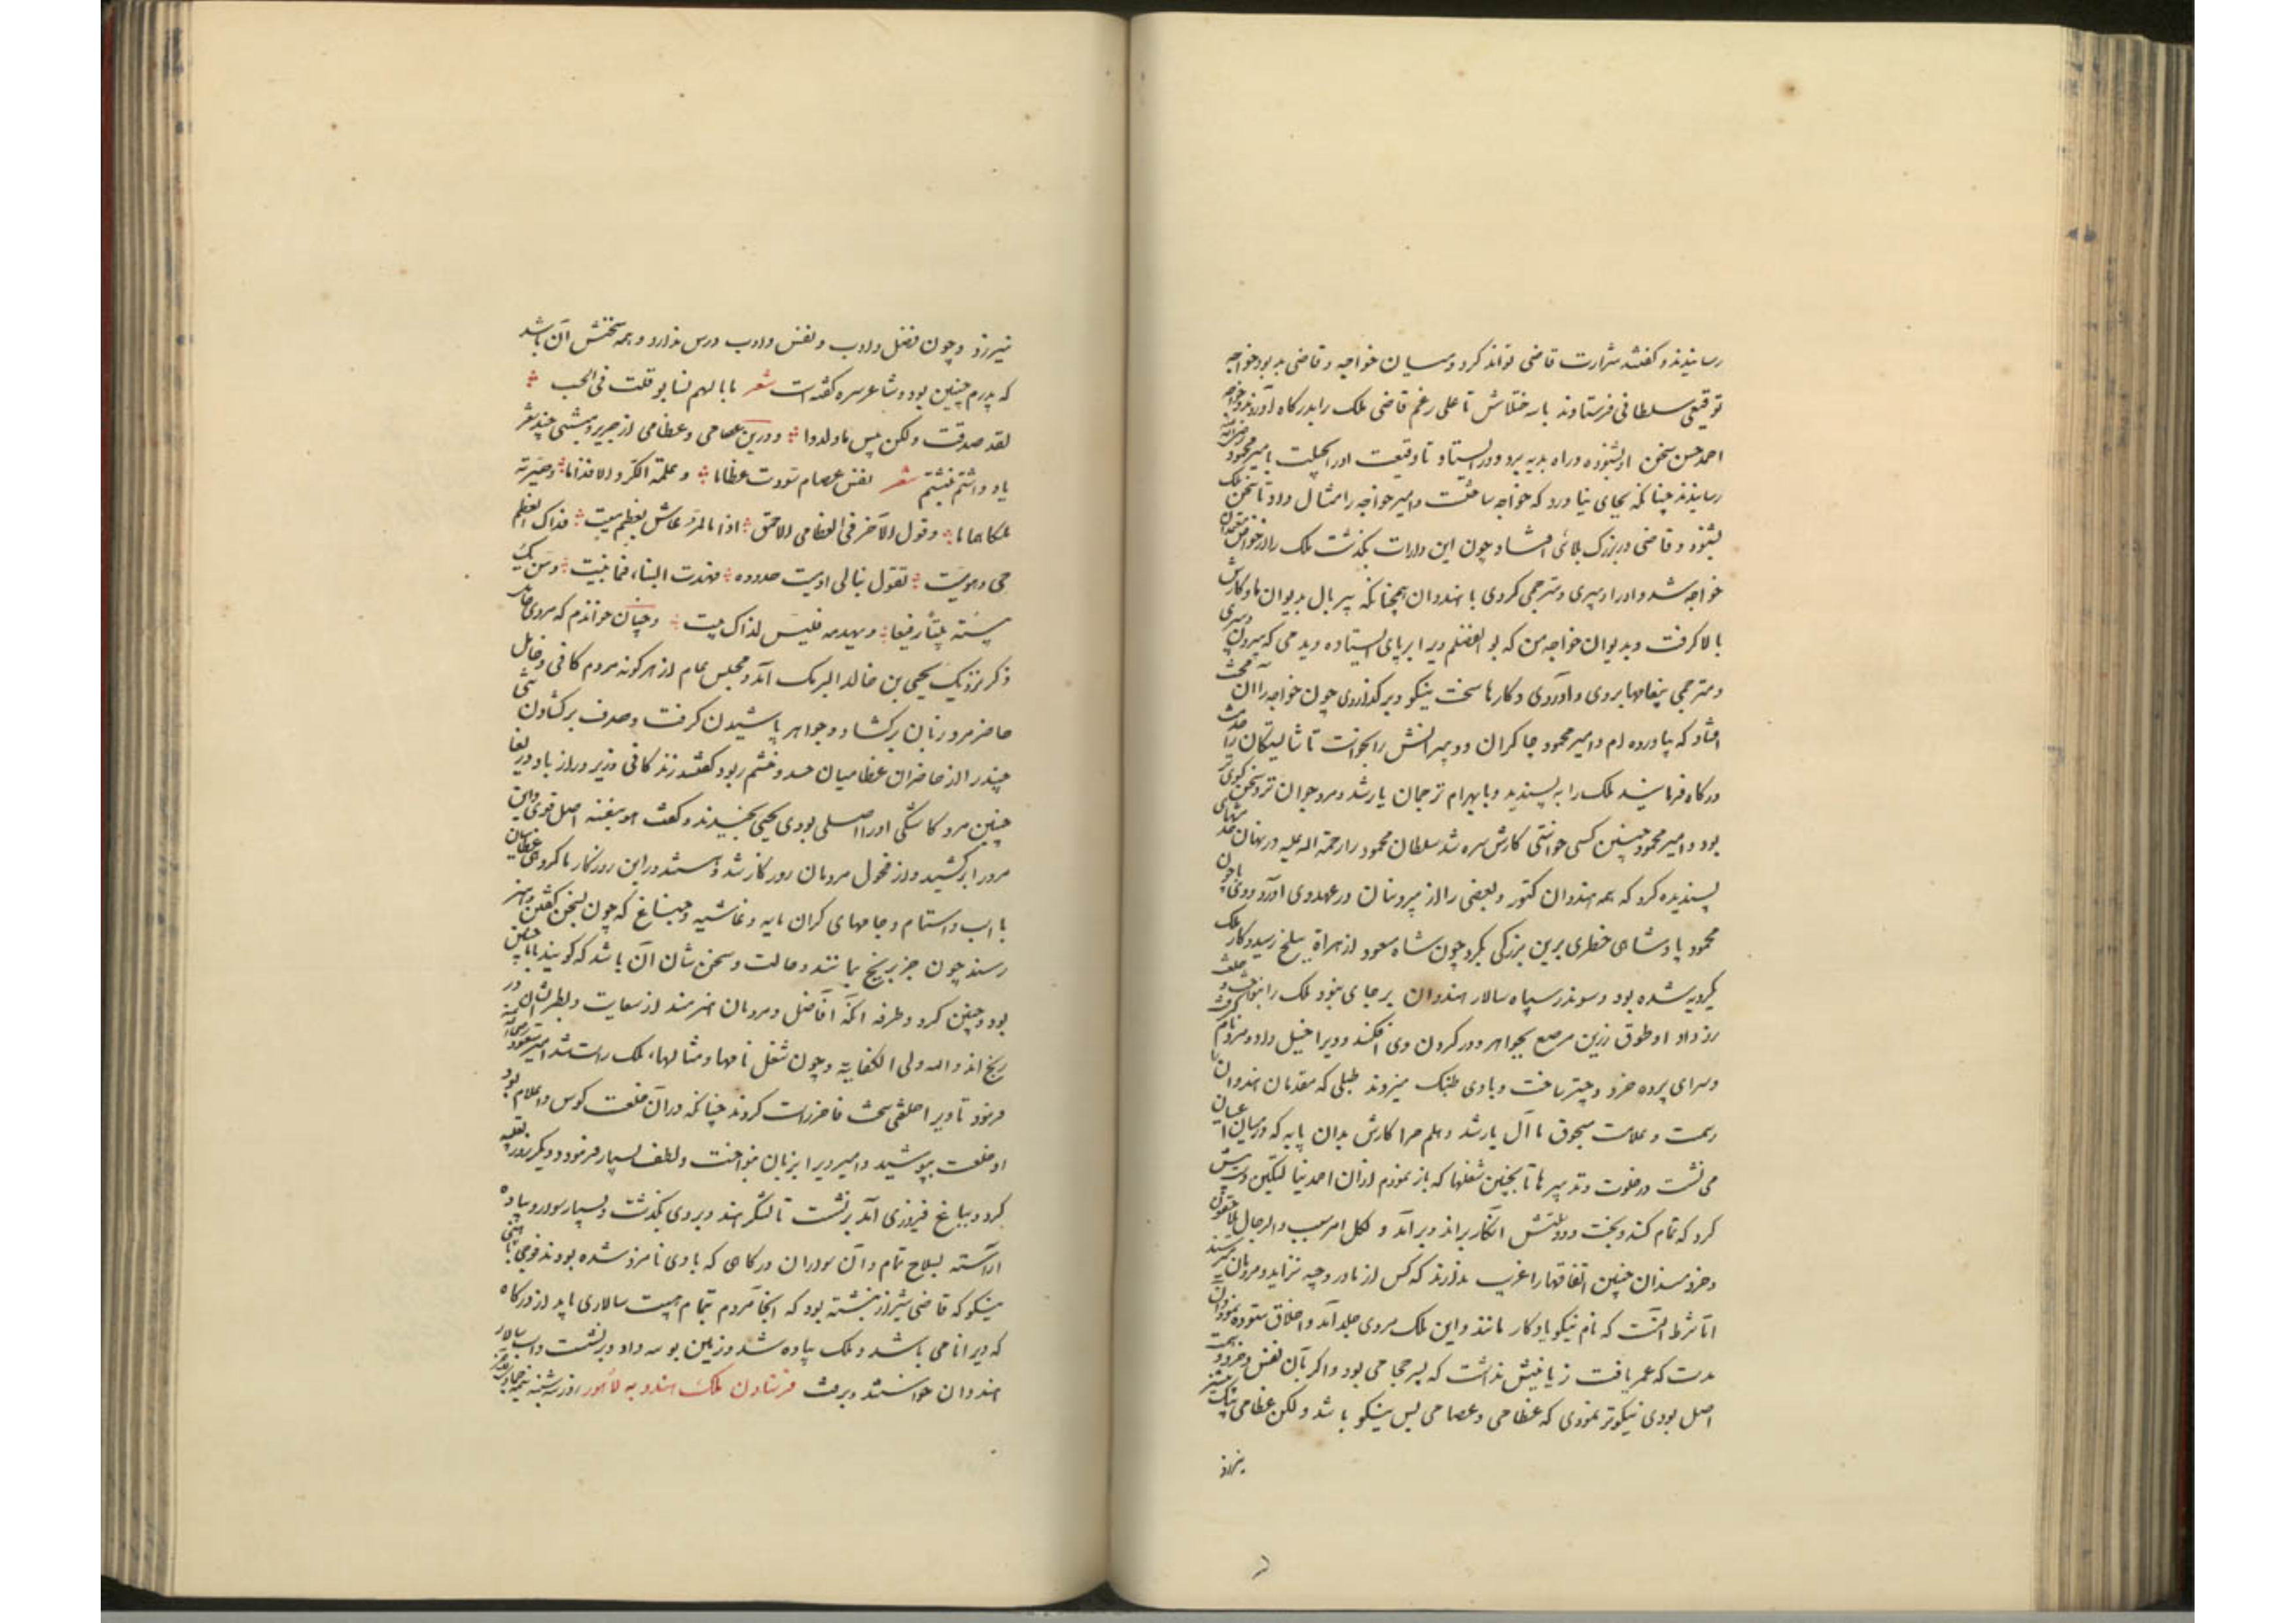 رسانیدند و گفتند شرارت قاضی تواند کرد و میان خواجه و قاضی بد بود خواجه
توقیعی سلطانی فرستاوند با سه خیلتاش تا علی رغم قاضی تلک را بدرگاه آوردند و خواجه
احمد حسن سخن او بشنوده و راه بدیه برد و در ایستاد تا رقیعت او را بحیلت بامیر محمود رضی الله
رسانیدند چنانکه بجای نیاورد که خواجه ساخته است و امیر خواجه را مثال داد تا سخن تلک
بشنود و قاضی در بزرگ بلائی افتاد و چون این دارات بگذشت تلک را از خواص معتمدان
خواجه شد و او را دبیری و مترجمی کردی با هندوان همچنانکه بیربال بدیوان ما و کارش
بالا گرفت و بدیوان خواجه من که بوالفضلم ویرا بر پای ایستاده دیدمی که بیرون دبیری
و مترجمی پیغامها بردی و آوردی و کارها سخت نیکو برگذاردی چون خواجه را آن محنت
افتاد که بیاورده ام و امیر محمود چاکران و دبیرانش را بخواست تا شایستگان را خدمت
درگاه فرمایند تلک را بپسندید و با بهرام ترجمان یار شد و مرد جوان تر و سخن گوی تر
بود و امیر محمود چنین کسی خواستی کارش سره شد سلطان محمود را رحمة الله علیه در نهان خدمتهای
پسندیده کرد که همه هندوان کتور و بعضی را از بیرونیان در عهد وی آورد و وی با چون
محمود پادشاهی خطری برین بزرگی بکرد چون شاه مسعود از هراة ببلخ رسید و کار تلک
یکرویه شده بود و سوندر سپاه سالار هندوان بر جای نبود تلک را بنواخت و خلعت
زر داد و طوق زرین مرصع بجواهر در گردن وی افکند و ویرا خیل داد و مرد نام گرفت
و سرای پرده خرد و چتر ساخت و با وی طبلک میزدند طبلی که مقدمان هندوان را
رسمست و علامت منجوق با آن یار شد و هلم جرا کارش بدان پایه که در میان اعیان
می نشست در خلوت و تدبیرها تا بچنین شغلها که باز نمودم از آن احمد نیالتگین دست پیش
کرد که تمام کند و بخت و دولتش آنکار براند و برآمد و لکل امر سبب و الرجال یتلاحقون
و خردمندان چنین اتفاقها را غریب ندارند که کس از مادر وجیه نزاید و مردمان میرسند
اما شرط آنست که نام نیکو یادگار مانند و این تلک مردی جلد آمد و اخلاق ستوده نمود و آن
مدت که عمر یافت زیانیش نداشت که پسر حجامی بود و اگر بآن نفس و خرد و همت
اصل بودی نیکوتر نمودی که عظامی و عصامی بس نیکو باشد ولکن عظامی بیک پشیز
نیرزد
نیرزد و چون فضل و ادب و نفس و ادب درس ندارد و همه سخنش آن باشد
که پدرم چنین بود و شاعر سره گفته است شعر بابالهم نسابو قلت فی الحب
لقد صدقت ولکن بیس ما ولدوا و درین عصامی و عظامی از جریر و متنبی چند شعر
یاد داشتم نبشتم شعر نفس عصام سودت عظاما و علمته الکر و الاقداما و صیرته
ملکا هماما و قول الآخر فی العظامی الاحمق اذا ما المرء عاش بعظم میت فذاک العظم
حی و هو میت تقول بنالی ادبیت حدوده فهدمت البناء فما بنیت و من یک
بیته بیتا رفیعا و یهدمه فلیس لذاک بیت و چنان خواندم که مردی خامل
ذکر نزدیک یحیی بن خالد البرمک آمد و مجلس عام از هرگونه مردم کافی و خامل
حاضر مرد زبان برگشاد و جواهر پاشیدن گرفت و صدف برگشادن تنی
چند را از حاضران عظامیان حسد و خشم ربود گفتند زندگانی وزیر دراز باد دریغا
چنین مرد کاشکی او را اصلی بودی یحیی بخندید و گفت هو بنفسه اصل قوی و این
مرد را برکشید و از فحول مردمان روزگار شد و هستند درین روزگار ما گروهی عظامیان
با اسب و استام و جامهای گران مایه و غاشیه و جناغ که چون بسخن گفتن و هنر
رسند چون خر بر یخ بمانند و حالت و سخن شان آن باشد که گویند بابای من چنین
بود و چنین کرد و طرفه آنکه افاضل و مردمان هنرمند از سعایت و بطر ایشان در
رنج اند والله ولی الکفایة و چون شغل نامها و مثالهای تلک راست شد امیر مسعود رضی الله
فرمود تا ویرا خلعتی سخت فاخر راست کردند چنانکه در آن خلعت کوس و اعلام بود
او خلعت بپوشید و امیر ویرا بزبان بنواخت و لطف بسیار فرمود و دیگر روز تعبیه
کرد و بباغ فیروزی آمد برنشست تا لشکر هند بر وی بگذشت و بسیار سوار و پیاده
آراسته بسلاح تمام و آن سواران درگاهی که با وی نامزد شده بودند فوجی با هیبتی
نیکو که قاضی شیراز بنبشته بود که آنجا مردم بتمام هست سالاری باید از درگاه
که ویرا نامی باشد و تلک پیاده شد و زمین بوسه داد و برنشست و اسب سالار
هندوان خواستند و برفت فرستادن تلک هندو به لاهور روز سه شنبه نیمه جمادی الآخر